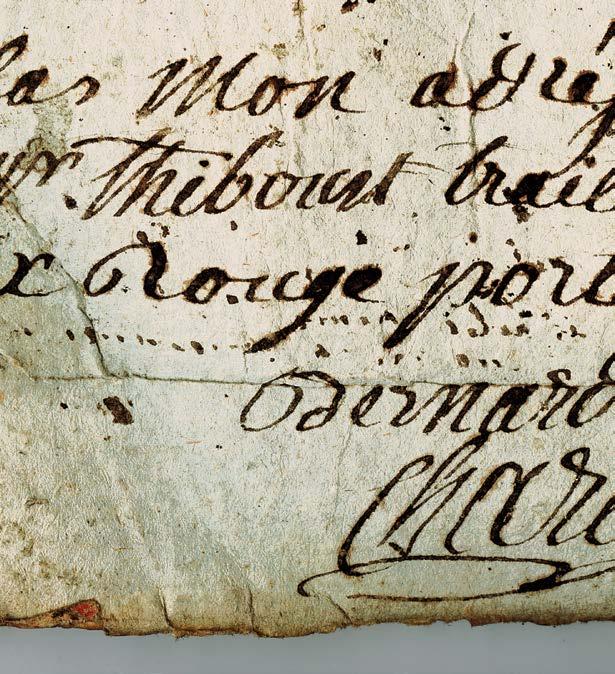 las Mon adre
yr. Thiboust trait
x Rouge port
Bernard
Char